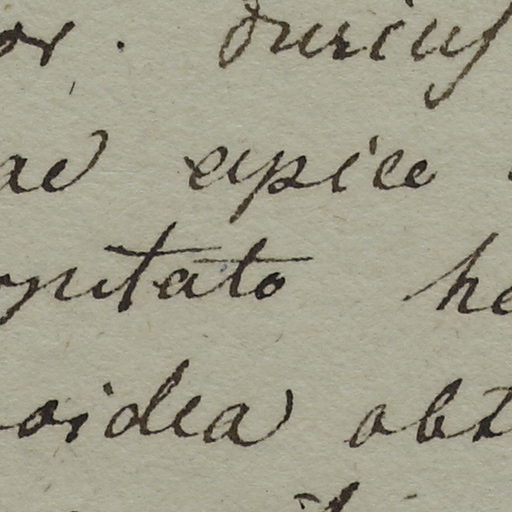 or. durius
ae apice
apitato he
oidea obt